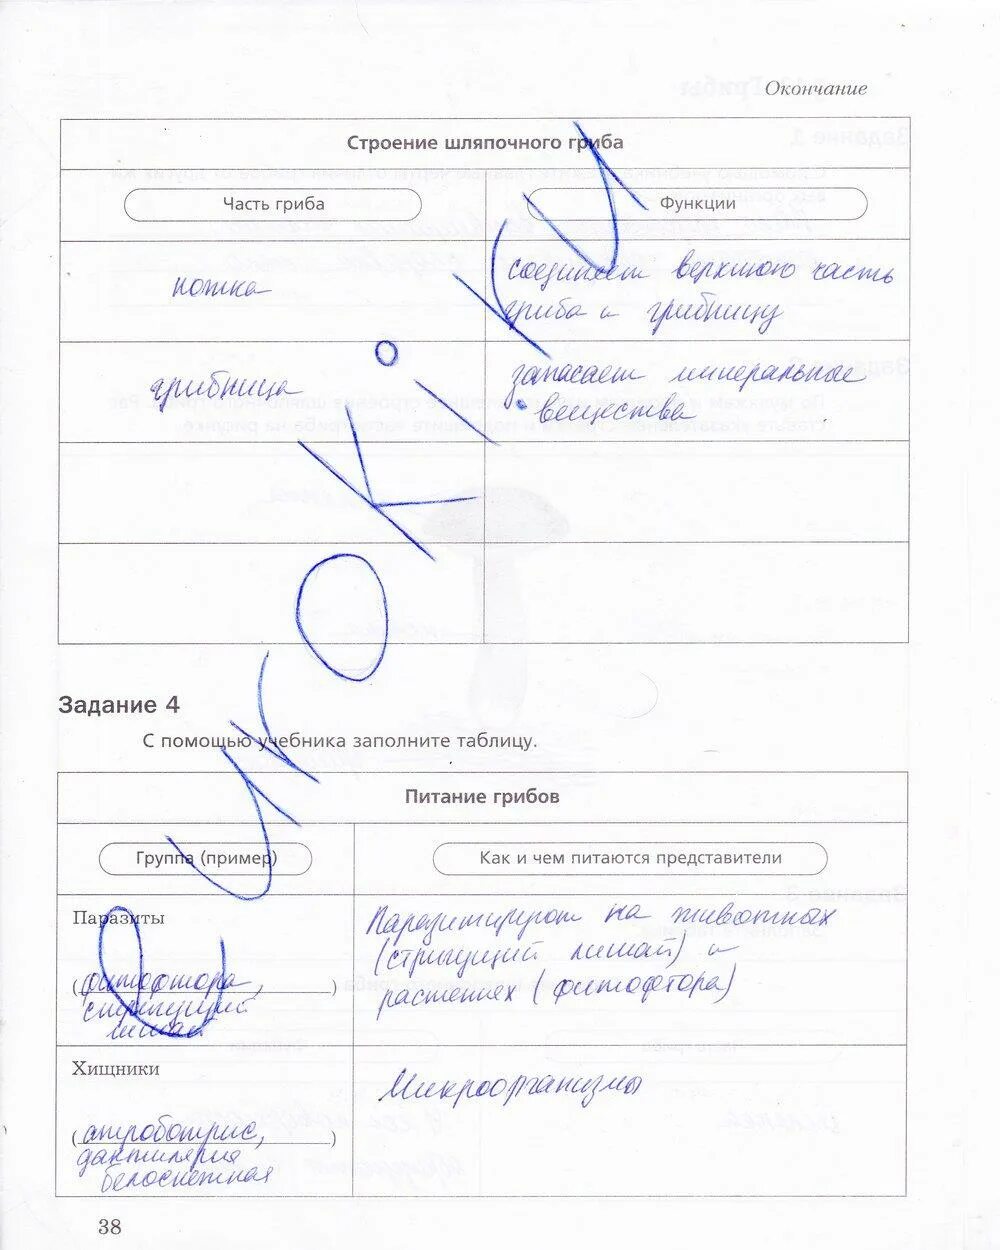 Окончание
Строение шляпочного гриба
Часть гриба
Функции
ножка
соединяет верхнюю часть
гриба и грибницу
грибница
запасает минеральные
вещества
Задание 4
С помощью учебника заполните таблицу.
Питание грибов
Группа (пример)
Как и чем питаются представители
Паразиты
(фитофтора,)
стригущий
лишай
Паразитируют на животных
(стригущий лишай) и
растениях (фитофтора)
Хищники
(артроботрис,)
дактилярия
белоснежная
Микроорганизмы
38